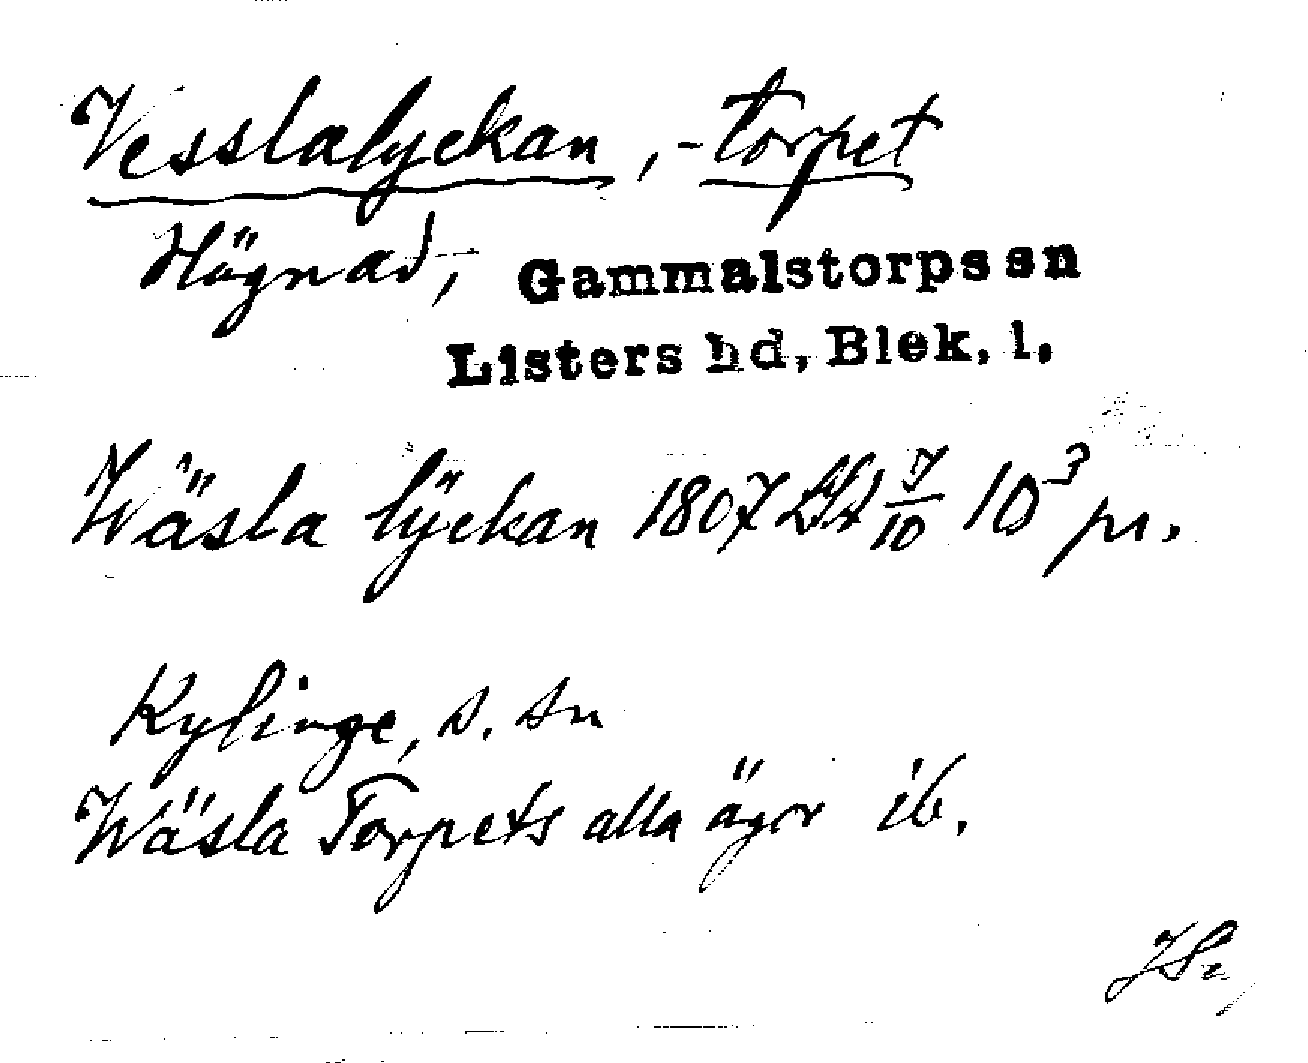 Vesslalyckan, -torpet
Högnad, Gammalstorps sn
Listers hd, Blek. l.
Wäsla lÿckan 1807 LSA 7/10 10³ pr.
Kylinge, s. sn
Wäsla Torpets alla ägor ib.